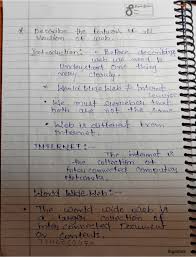 * Describe the features of all
Version of web.
Introduction: - Before describing
web we need to
Understand one thing
very clearly.
• World Wide Web ≠ Internet
• We must remember that
both are not the same
• Web is different from
Internet.
INTERNET:-
The internet is
the collection of
Interconnected computers
networks.
World Wide Web:-
• The world wide web is
a large collection of
interconnected Document
or contents.